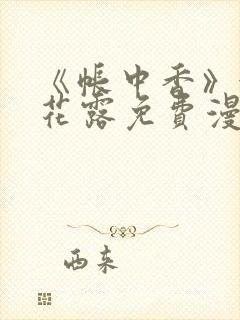 《帐中香》
花露免费漫
西东